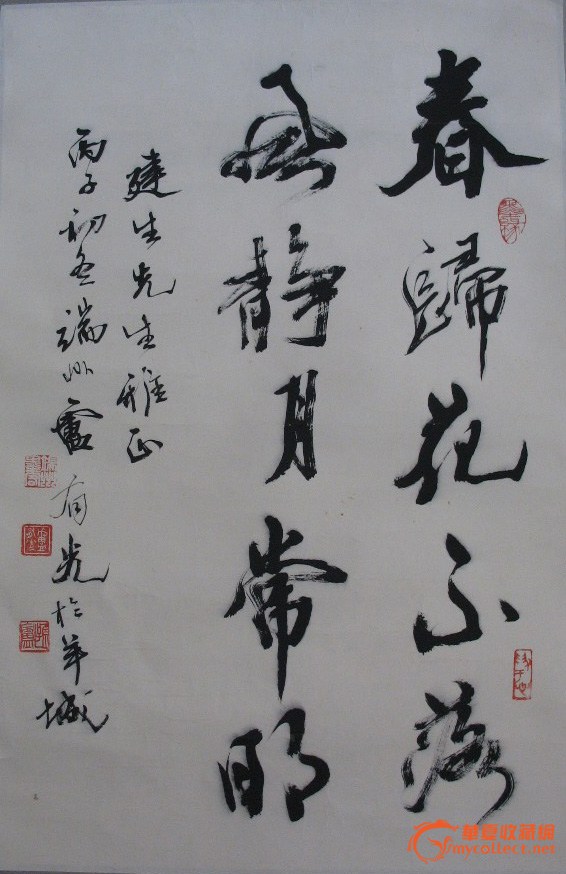 春歸花不落
風静月常明
建生先生雅正
丙子初冬端州盧有光於羊城
華夏收藏網
mycollect.net